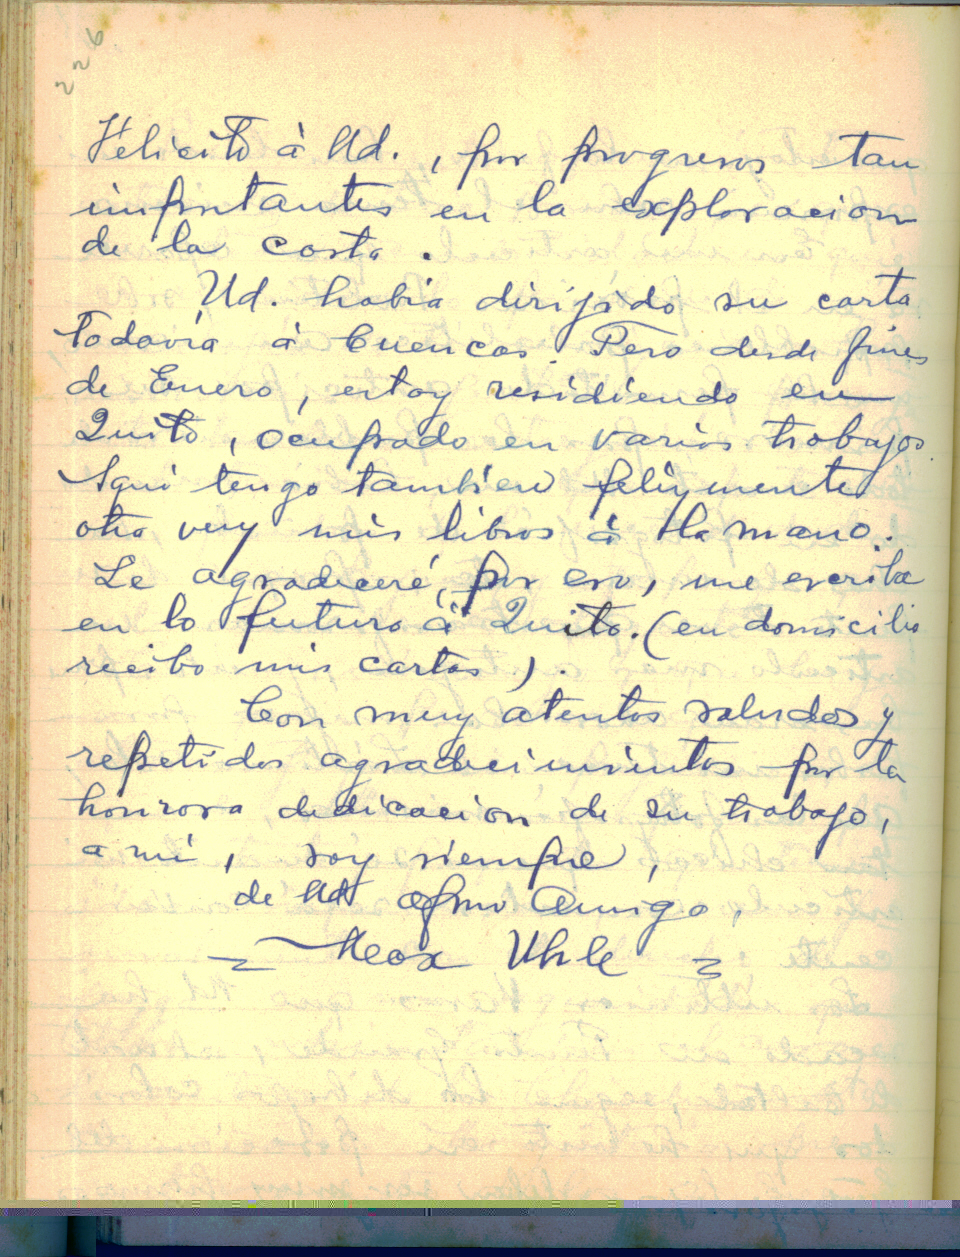 226
Felicito à Ud., por progresos tan
importantes en la exploracion
de la costa.
Ud. habia dirijido su carta
todavía à Cuenca. Pero desde fines
de Enero, estoy residiendo en
Quito, ocupado en varios trabajos.
Aqui tengo tambien felizmente
otra vez mis libros à la mano.
Le agradeceré, por eso, me escriba
en lo futuro à Quito. (en domicilio
recibo mis cartas).
Con muy atentos saludos y
repetidos agradecimientos por la
honrosa dedicacion de su trabajo,
a mi, soy siempre,
de Ud afmo Amigo,
Max Uhle